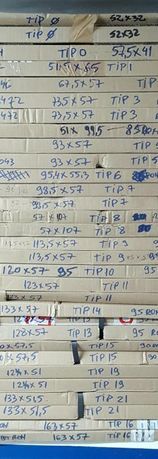 TİP Ø 52x32
TİP Ø 52x32
TİPO 57,5x41
TİP 1
67,5x57 TİP 2
472 73,5x57 TİP 3
472 73,5x57 TİP 3
51x 99,5
93x57 TİP 5
043 93x57 TİP 5
95,4x55,3 TİP 6
98,5x57 TİP 7
98,5x57 TİP 7
57x107 TİP 8
57x107 TİP 8
113,5x57 TİP 9
113,5x57 TİP 9
120x57 95 TİP 10 95
123x57 TİP 11
x57 TİP 11
133x57 TİP 14 95
128x57 TİP 13 95
x57,5 TİP 15 90
x57,5 TİP 15
TİP 19
x51 TİP 19
133x51,5 TİP 21
133x51,5 TİP 21
163x57 TİP 16
163x57 TİP 16